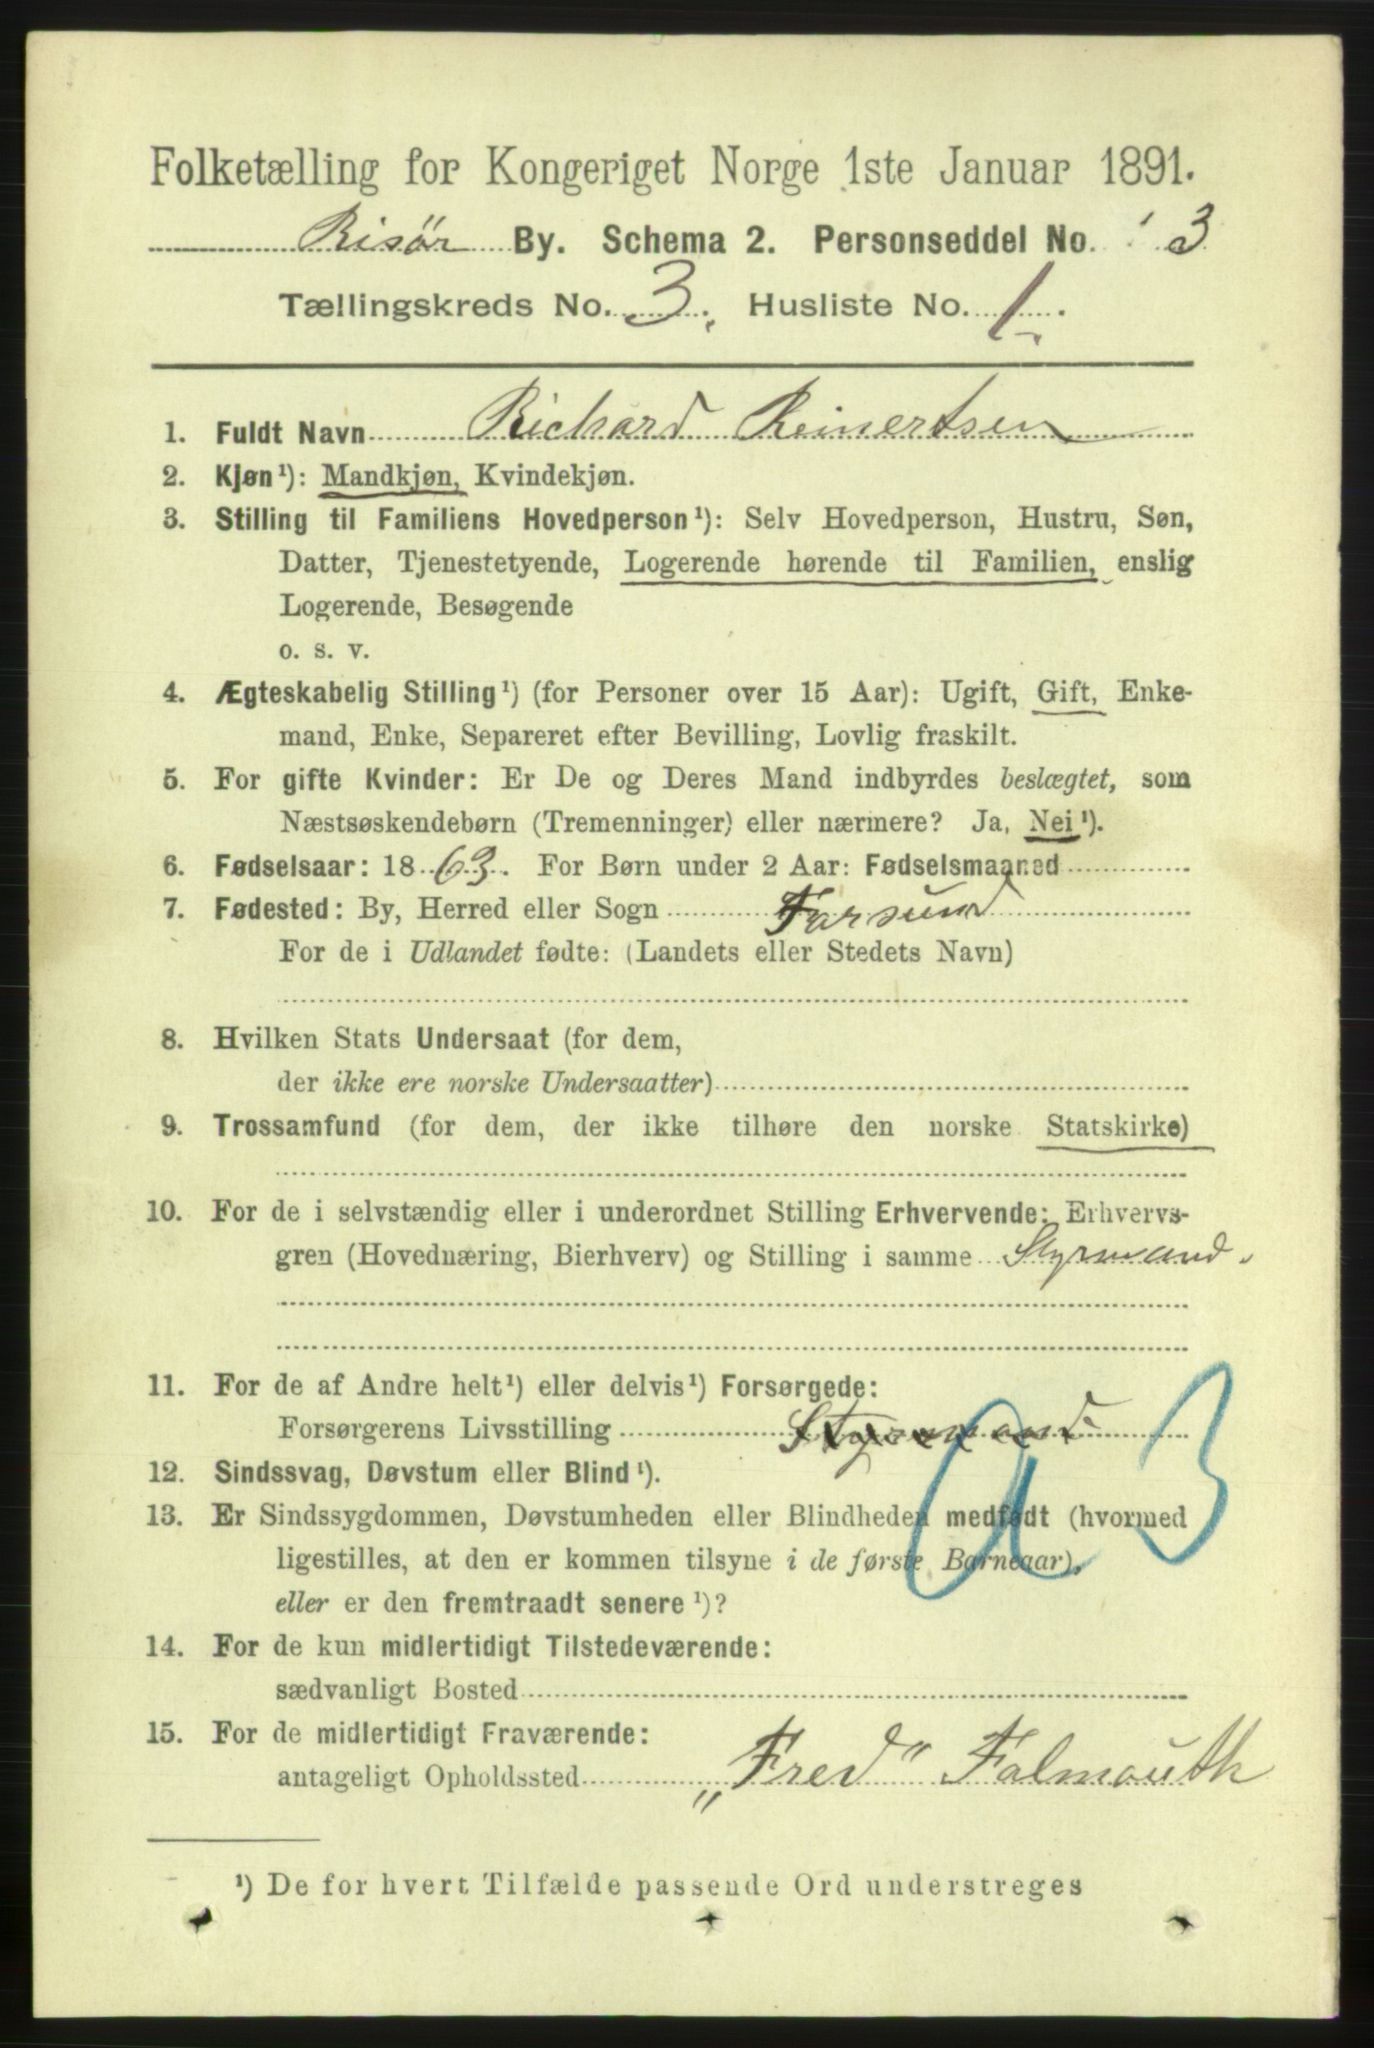 Folketælling for Kongeriget Norge 1ste Januar 1891.
Risør By. Schema 2. Personseddel No. 3
Tællingskreds No. 3. Husliste No. 1.
1. Fuldt Navn Richard Reinertsen
2. Kjøn¹): Mandkjøn, Kvindekjøn.
3. Stilling til Familiens Hovedperson¹): Selv Hovedperson, Hustru, Søn,
Datter, Tjenestetyende, Logerende hørende til Familien, enslig
Logerende, Besøgende
o. s. v.
4. Ægteskabelig Stilling¹) (for Personer over 15 Aar): Ugift, Gift, Enke-
mand, Enke, Separeret efter Bevilling, Lovlig fraskilt.
5. For gifte Kvinder: Er De og Deres Mand indbyrdes beslægtet, som
Næstsøskendebørn (Tremenninger) eller nærmere? Ja, Nei¹).
6. Fødselsaar: 1863. For Børn under 2 Aar: Fødselsmaaned
7. Fødested: By, Herred eller Sogn Farsund
For de i Udlandet fødte: (Landets eller Stedets Navn)
8. Hvilken Stats Undersaat (for dem,
der ikke ere norske Undersaatter)
9. Trossamfund (for dem, der ikke tilhøre den norske Statskirke)
10. For de i selvstændig eller i underordnet Stilling Erhvervende: Erhvervs-
gren (Hovednæring, Bierhverv) og Stilling i samme Styrmand.
11. For de af Andre helt¹) eller delvis¹) Forsørgede:
Forsørgerens Livsstilling Styrmand
12. Sindssvag, Døvstum eller Blind¹).
13. Er Sindssygdommen, Døvstumheden eller Blindheden medfødt (hvormed
ligestilles, at den er kommen tilsyne i de første Barneaar),
eller er den fremtraadt senere¹)?
14. For de kun midlertidigt Tilstedeværende:
sædvanligt Bosted
15. For de midlertidigt Fraværende:
antageligt Opholdssted „Fred" Falmouth
¹) De for hvert Tilfælde passende Ord understreges